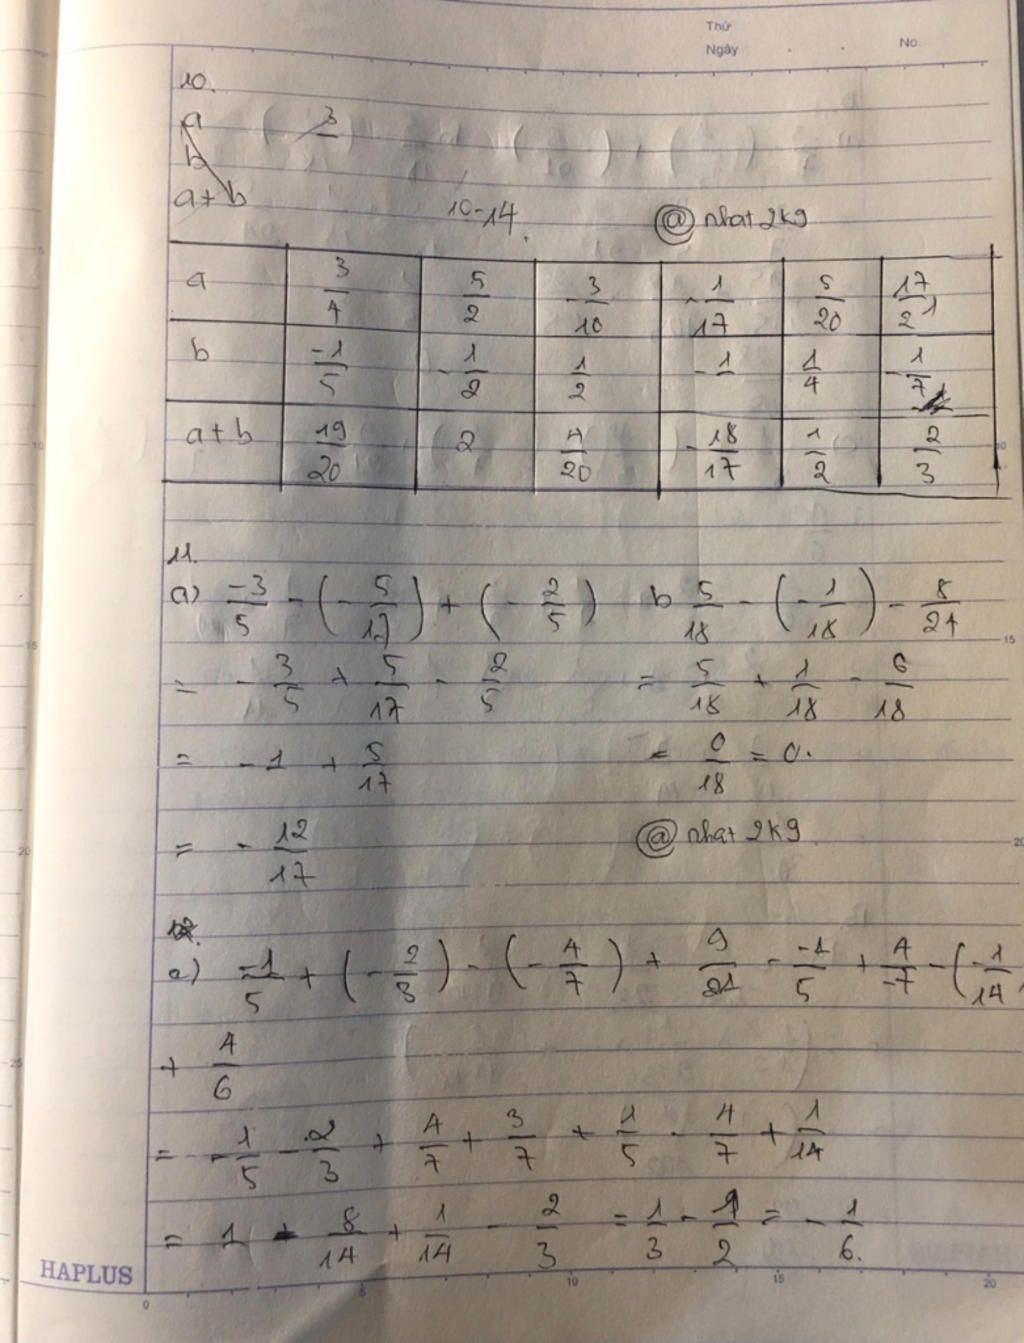 Thứ
Ngày . . No.
10.
a 3
b
a+b
10-14. @nhat2k9
a 3/4 5/2 -3/10 -1/17 5/20 17/21
b -1/5 -1/2 1/2 -1 1/4 -1/7
a+b 19/20 2 4/20 -18/17 1/2 2/3
11.
a) -3/5 - (-5/17) + (-2/5) b 5/18 - (-1/18) - 8/24
= -3/5 + 5/17 - 2/5 = 5/18 + 1/18 - 6/18
= -1 + 5/17 = 0/18 = 0.
= -12/17 @nhat2k9
12.
a) -1/5 + (-2/3) - (-4/7) + 9/21 - -1/5 + 4/-7 - (-1/14)
+ 4/6
= -1/5 - 2/3 + 4/7 + 3/7 + 1/5 - 4/7 + 1/14
= 1 - 8/14 + 1/14 - 2/3 = 1/3 - 1/2 = -1/6.
HAPLUS
0 5 10 15 20